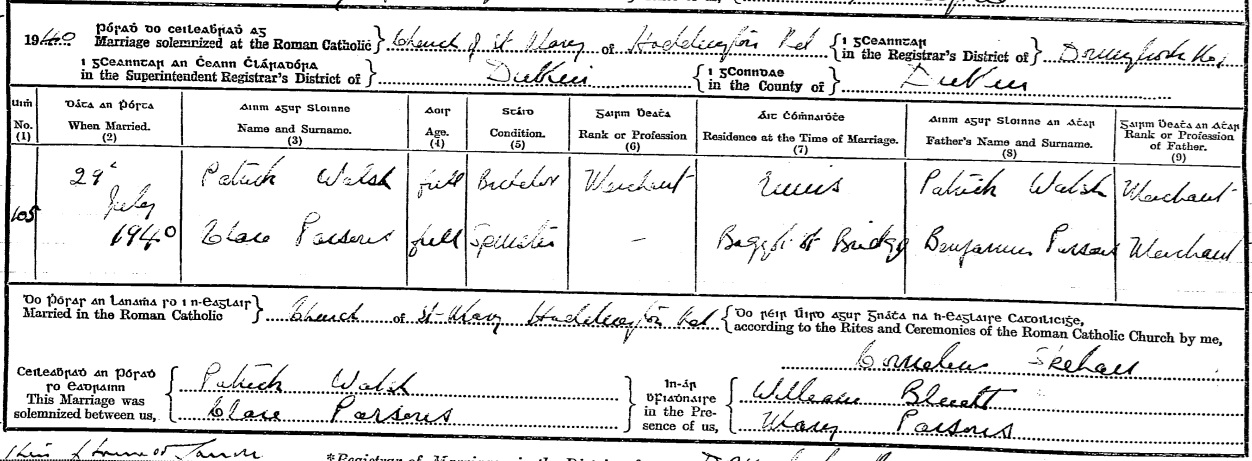 1940 Pósadh do ceileabhradh ag
Marriage solemnized at the Roman Catholic } Church of St Mary of Haddington Rd { i gCeanntar
in the Registrar's District of } Donnybrook No 1
i gCeanntar an Cheann Chláradóra
in the Superintendent Registrar's District of } Dublin { i gConndae
in the County of } Dublin
Uimh. Dáta an Phósta Ainm agus Sloinne Aois Stáid Gairm Bheatha Áit Chómhnuidhthe Ainm agus Sloinne an Athar Gairm Bheatha an Athar
No. When Married. Name and Surname. Age. Condition. Rank or Profession Residence at the Time of Marriage. Father's Name and Surname. Rank or Profession of Father.
(1) (2) (3) (4) (5) (6) (7) (8) (9)
29th Patrick Walsh full Bachelor Merchant Ennis Patrick Walsh Merchant
July
105 1940 Clare Parsons full Spinster – Baggot St Bridge Benjamin Parsons Merchant
Do pósadh an lanamha so i n-eaglais
Married in the Roman Catholic } Church of St Mary Haddington Rd { Do réir Úird agus Gnátha na h-eaglaise Catoilicighe,
according to the Rites and Ceremonies of the Roman Catholic Church by me,
Cornelius
Ceileabhradh an Pósadh
so eadrainn
This Marriage was
solemnized between us,
Patrick Walsh
Clare Parsons
in-ár
bhfiadhnaise
in the Pre-
sence of us,
William
Mary Parsons